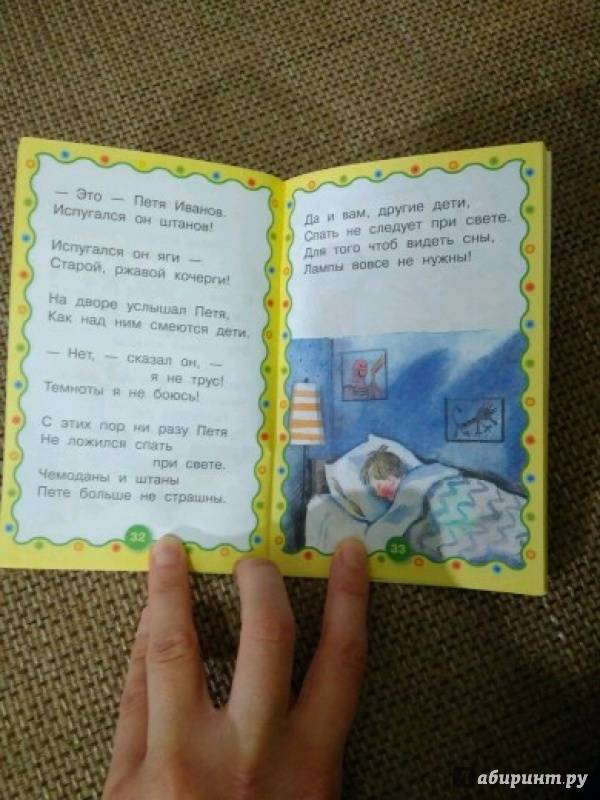 — Это — Петя Иванов.
Испугался он штанов!
Испугался он яги —
Старой, ржавой кочерги!
На дворе услышал Петя,
Как над ним смеются дети.
— Нет, — сказал он, —
я не трус!
Темноты я не боюсь!
С этих пор ни разу Петя
Не ложился спать
при свете.
Чемоданы и штаны
Пете больше не страшны.
32
Да и вам, другие дети,
Спать не следует при свете.
Для того чтоб видеть сны,
Лампы вовсе не нужны!
33
абиринт.ру